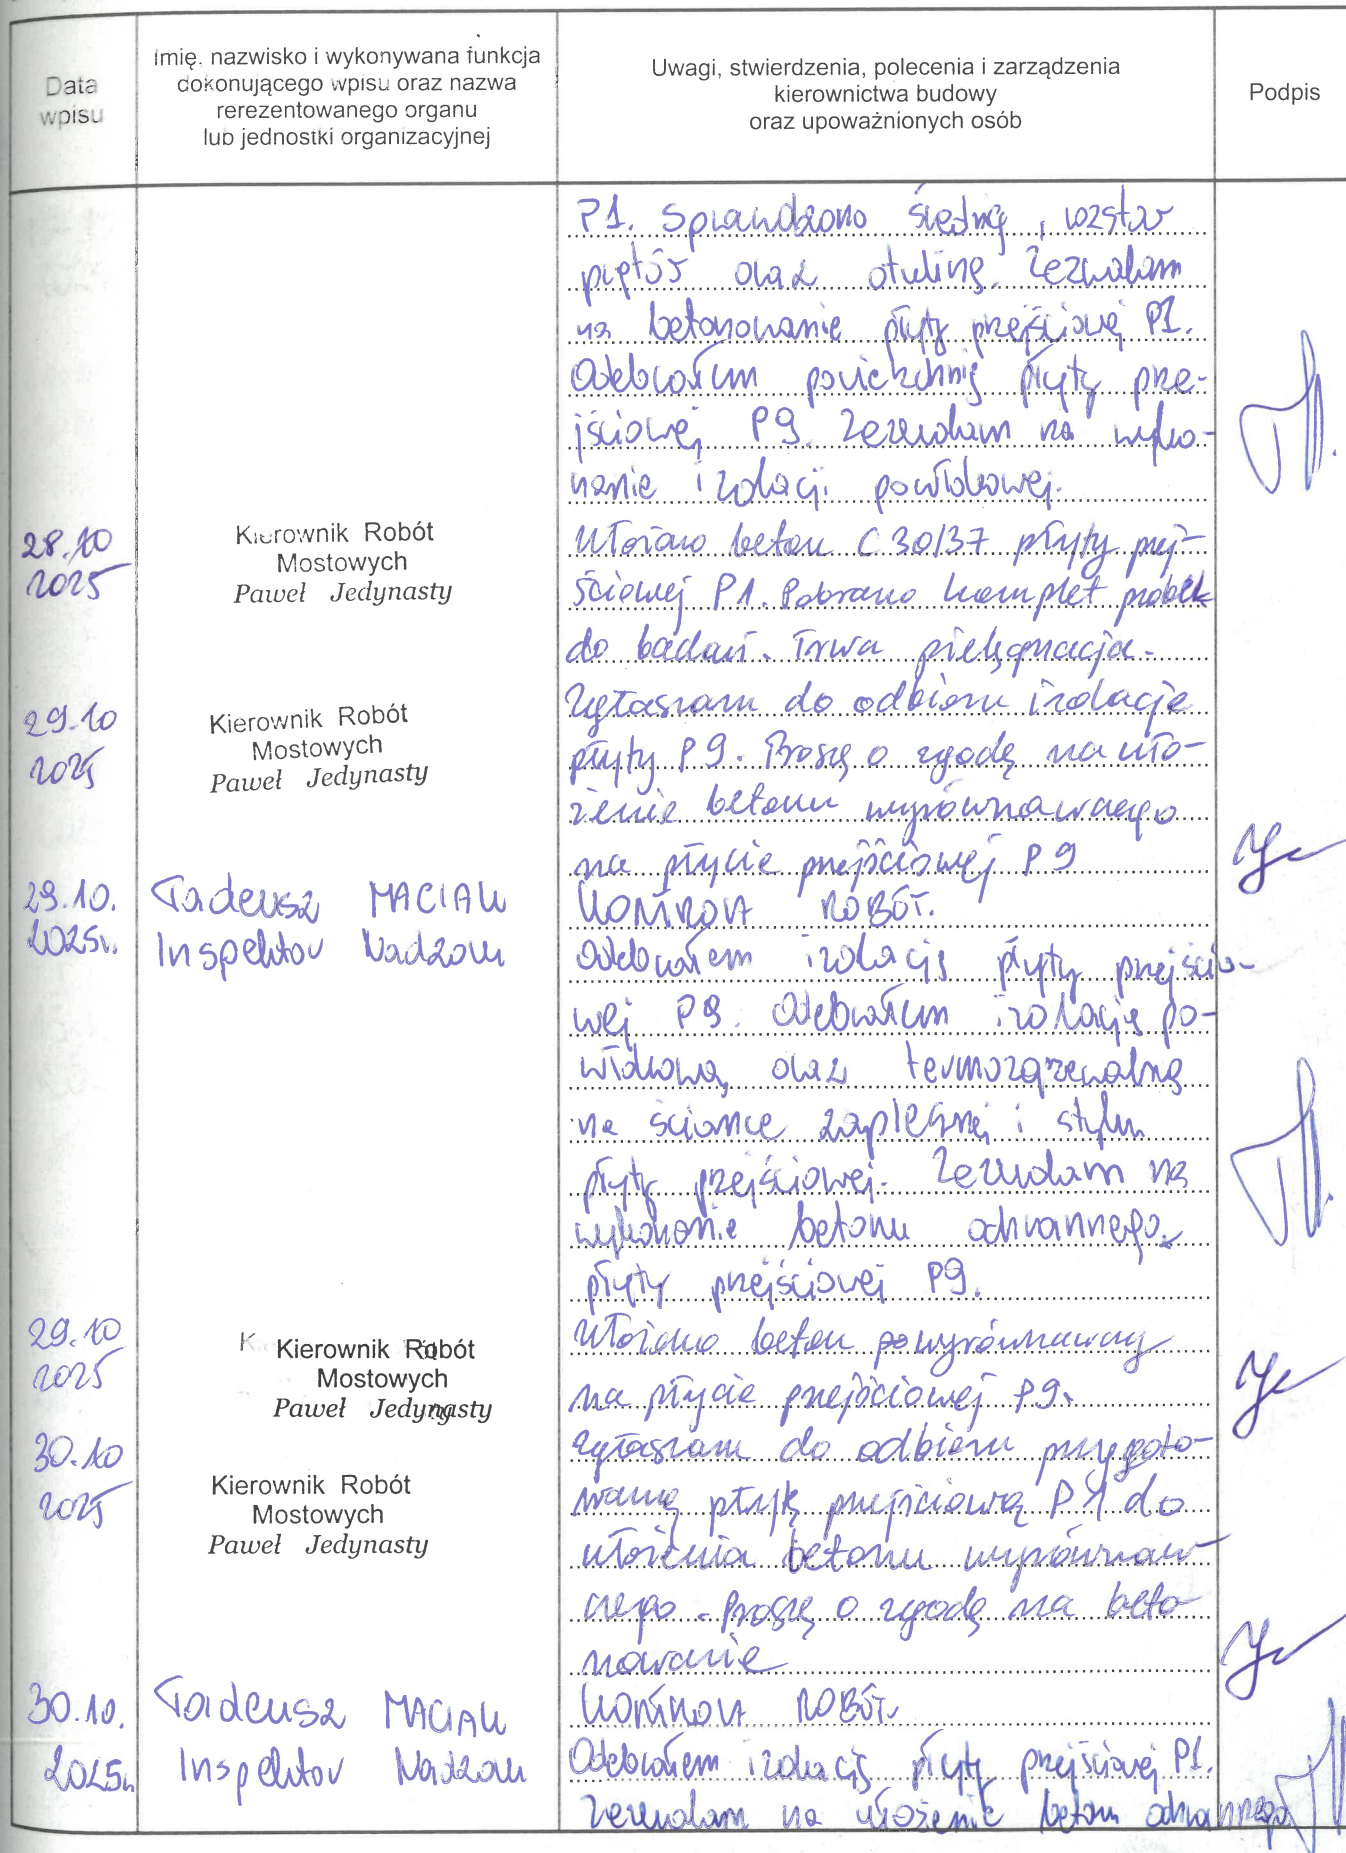 Data
wpisu
Imię, nazwisko i wykonywana funkcja
dokonującego wpisu oraz nazwa
rerezentowanego organu
lub jednostki organizacyjnej
Uwagi, stwierdzenia, polecenia i zarządzenia
kierownictwa budowy
oraz upoważnionych osób
Podpis
P1. Sprawdzono średnicę, rozstaw
prętów oraz otulinę. Zezwalam
na betonowanie płyty przejściowej P1.
Odebrałem powierzchnię płyty prze-
jściowej P9. Zezwalam na wyko-
nanie izolacji powłokowej.
28.10
2025
Kierownik Robót
Mostowych
Paweł Jedynasty
Ułożono beton C30/37 płyty przej-
ściowej P1. Pobrano komplet próbek
do badań. Trwa pielęgnacja.
29.10
2025
Kierownik Robót
Mostowych
Paweł Jedynasty
Zgłaszam do odbioru izolacje
płyty P9. Proszę o zgodę na uło-
żenie betonu wyrównawczego
na płycie przejściowej P9
29.10.
2025r.
Tadeusz MACIAK
Inspektor Nadzoru
KONTROLA ROBÓT.
Odebrałem izolację płyty przejścio-
wej P9. Odebrałem izolację po-
włokową oraz termozgrzewalną
na ściance zaplecznej i styku
płyty przejściowej. Zezwalam na
wykonanie betonu ochronnego
płyty przejściowej P9.
29.10
2025
Kierownik Robót
Mostowych
Paweł Jedynasty
Ułożono beton wyrównawczy
na płycie przejściowej P9.
30.10
2025
Kierownik Robót
Mostowych
Paweł Jedynasty
Zgłaszam do odbioru przygoto-
waną płytę przejściową P1 do
ułożenia betonu wyrównaw-
czego. Proszę o zgodę na beto
nowanie
30.10.
2025r.
Tadeusz MACIAK
Inspektor Nadzoru
KONTROLA ROBÓT.
Odebrałem izolację płyty przejściowej P1.
Zezwalam na ułożenie betonu ochronnego